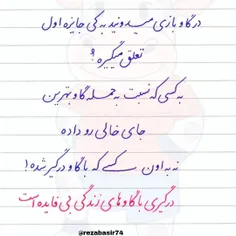 در گاو بازی میدونید به کی جایزه اول
تعلق میگیره؟
به کسی که نسبت به حمله گاو بهترین
جای خالی رو داده
نه به اون کسی که با گاو درگیر شده!
درگیری با گاوهای زندگی بی فایده است
@rezabasir74